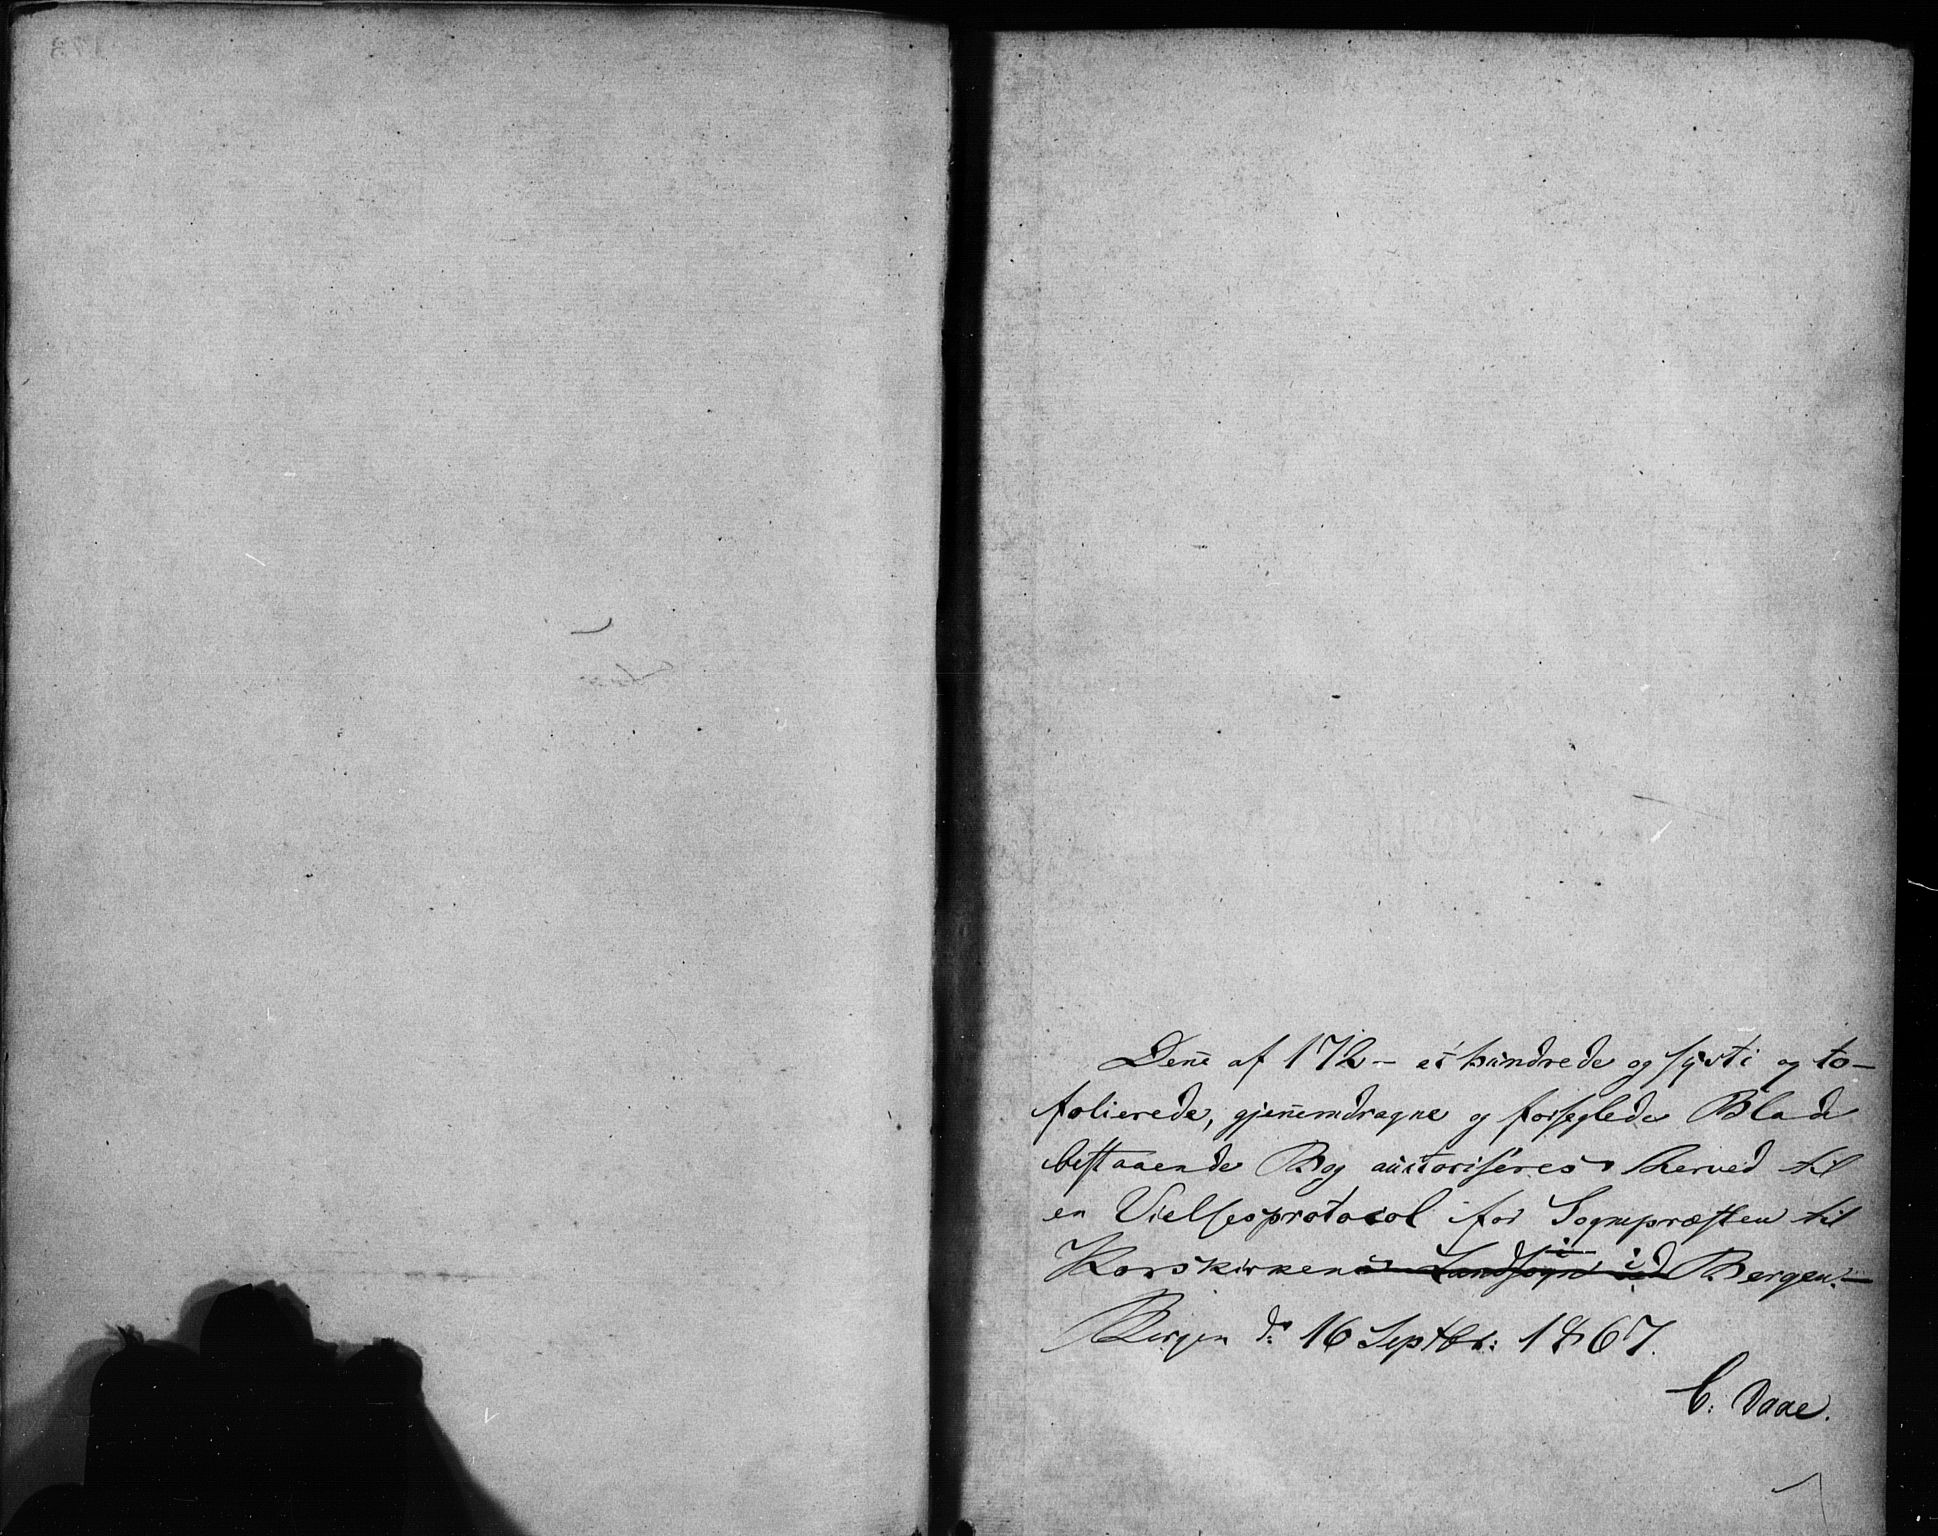 Den̄e af 172 – et hundrede og sytti og to –
folierede, gjen̄emdragne og forseglede Blade
bestaaende Bog autoriseres herved til
en Vielsesprotocol for Sognepræsten til
Korskirken i Landsogn i Bergen. –
Bergen dn 16 Septbr: 1867.
C. Daae.